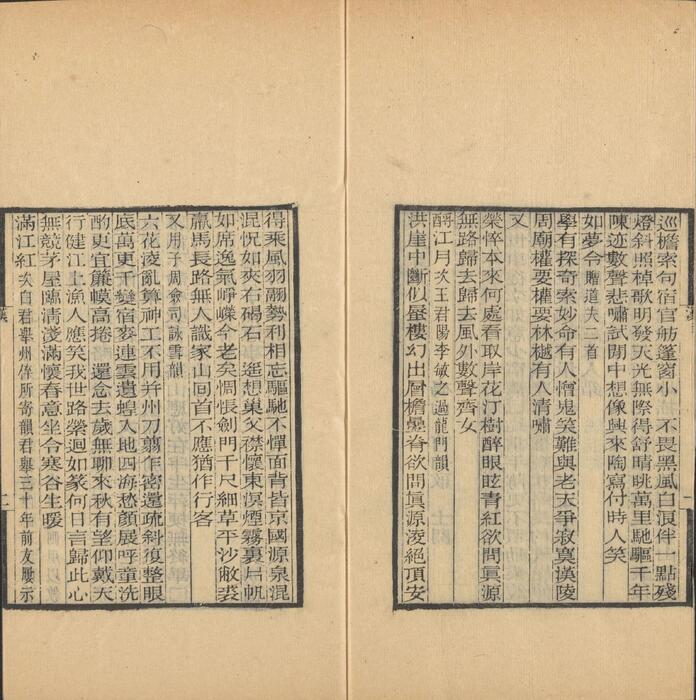 巡檐索句宿官舫篷窗小 不畏黑風白浪伴一點殘
燈斜照棹歌明發天光無際得舒晴眺萬里馳驅千年
陳迹數聲悲嘯試閒中想像興來陶寫付時人笑
如夢令贈道夫二首
學有探奇索妙命有人憎鬼笑難與老天爭寂寞漢陵
周廟權要權要林樾有人清嘯
又
榮悴本來何處看取岸花汀樹醉眼眩青紅欲問眞源
無路歸去歸去風外數聲齊女
酹江月次王君陽李敏之過龍門韻
洪崖中斷似蜃樓幻出層檐疊脊欲問眞源淩絕頂安
得乘風羽翮勢利相忘驅馳不憚面背皆京國源泉混
混怳如夾右碣石 遥想巢父襟懷東溟煙霧裏片帆
如席逸氣崢嶸今老矣惆悵劍門千尺細草平沙敝裘
羸馬長路無人識家山回首不應猶作行客
又用子周僉司詠雪韻
六花淩亂算神工不用并州刀翦作密還疏斜復整眼
底萬更千變宿麥連雲遺蝗入地四海愁顏展呼童洗
酌更宜簾幙高捲 還念去歲無聊來秋有望仰戴天
行健江上漁人應笑我世路縈迴如篆何日言歸此心
無競茅屋臨清淺滿懷春意坐令寒谷生暖
滿江紅次白君舉州倅所寄韻君舉三十年前友屢示